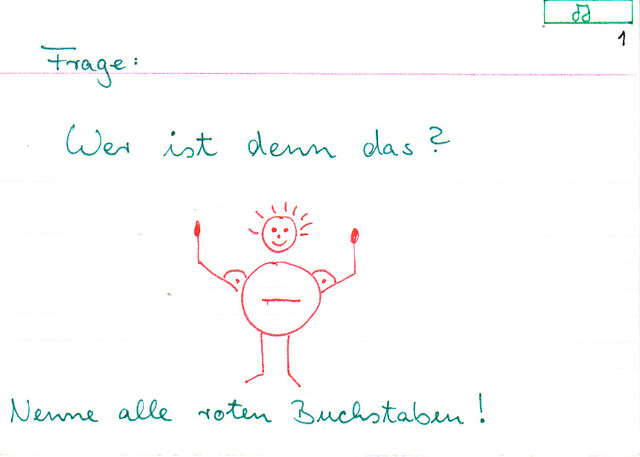 1
Frage:
Wer ist denn das?
Nenne alle roten Buchstaben!